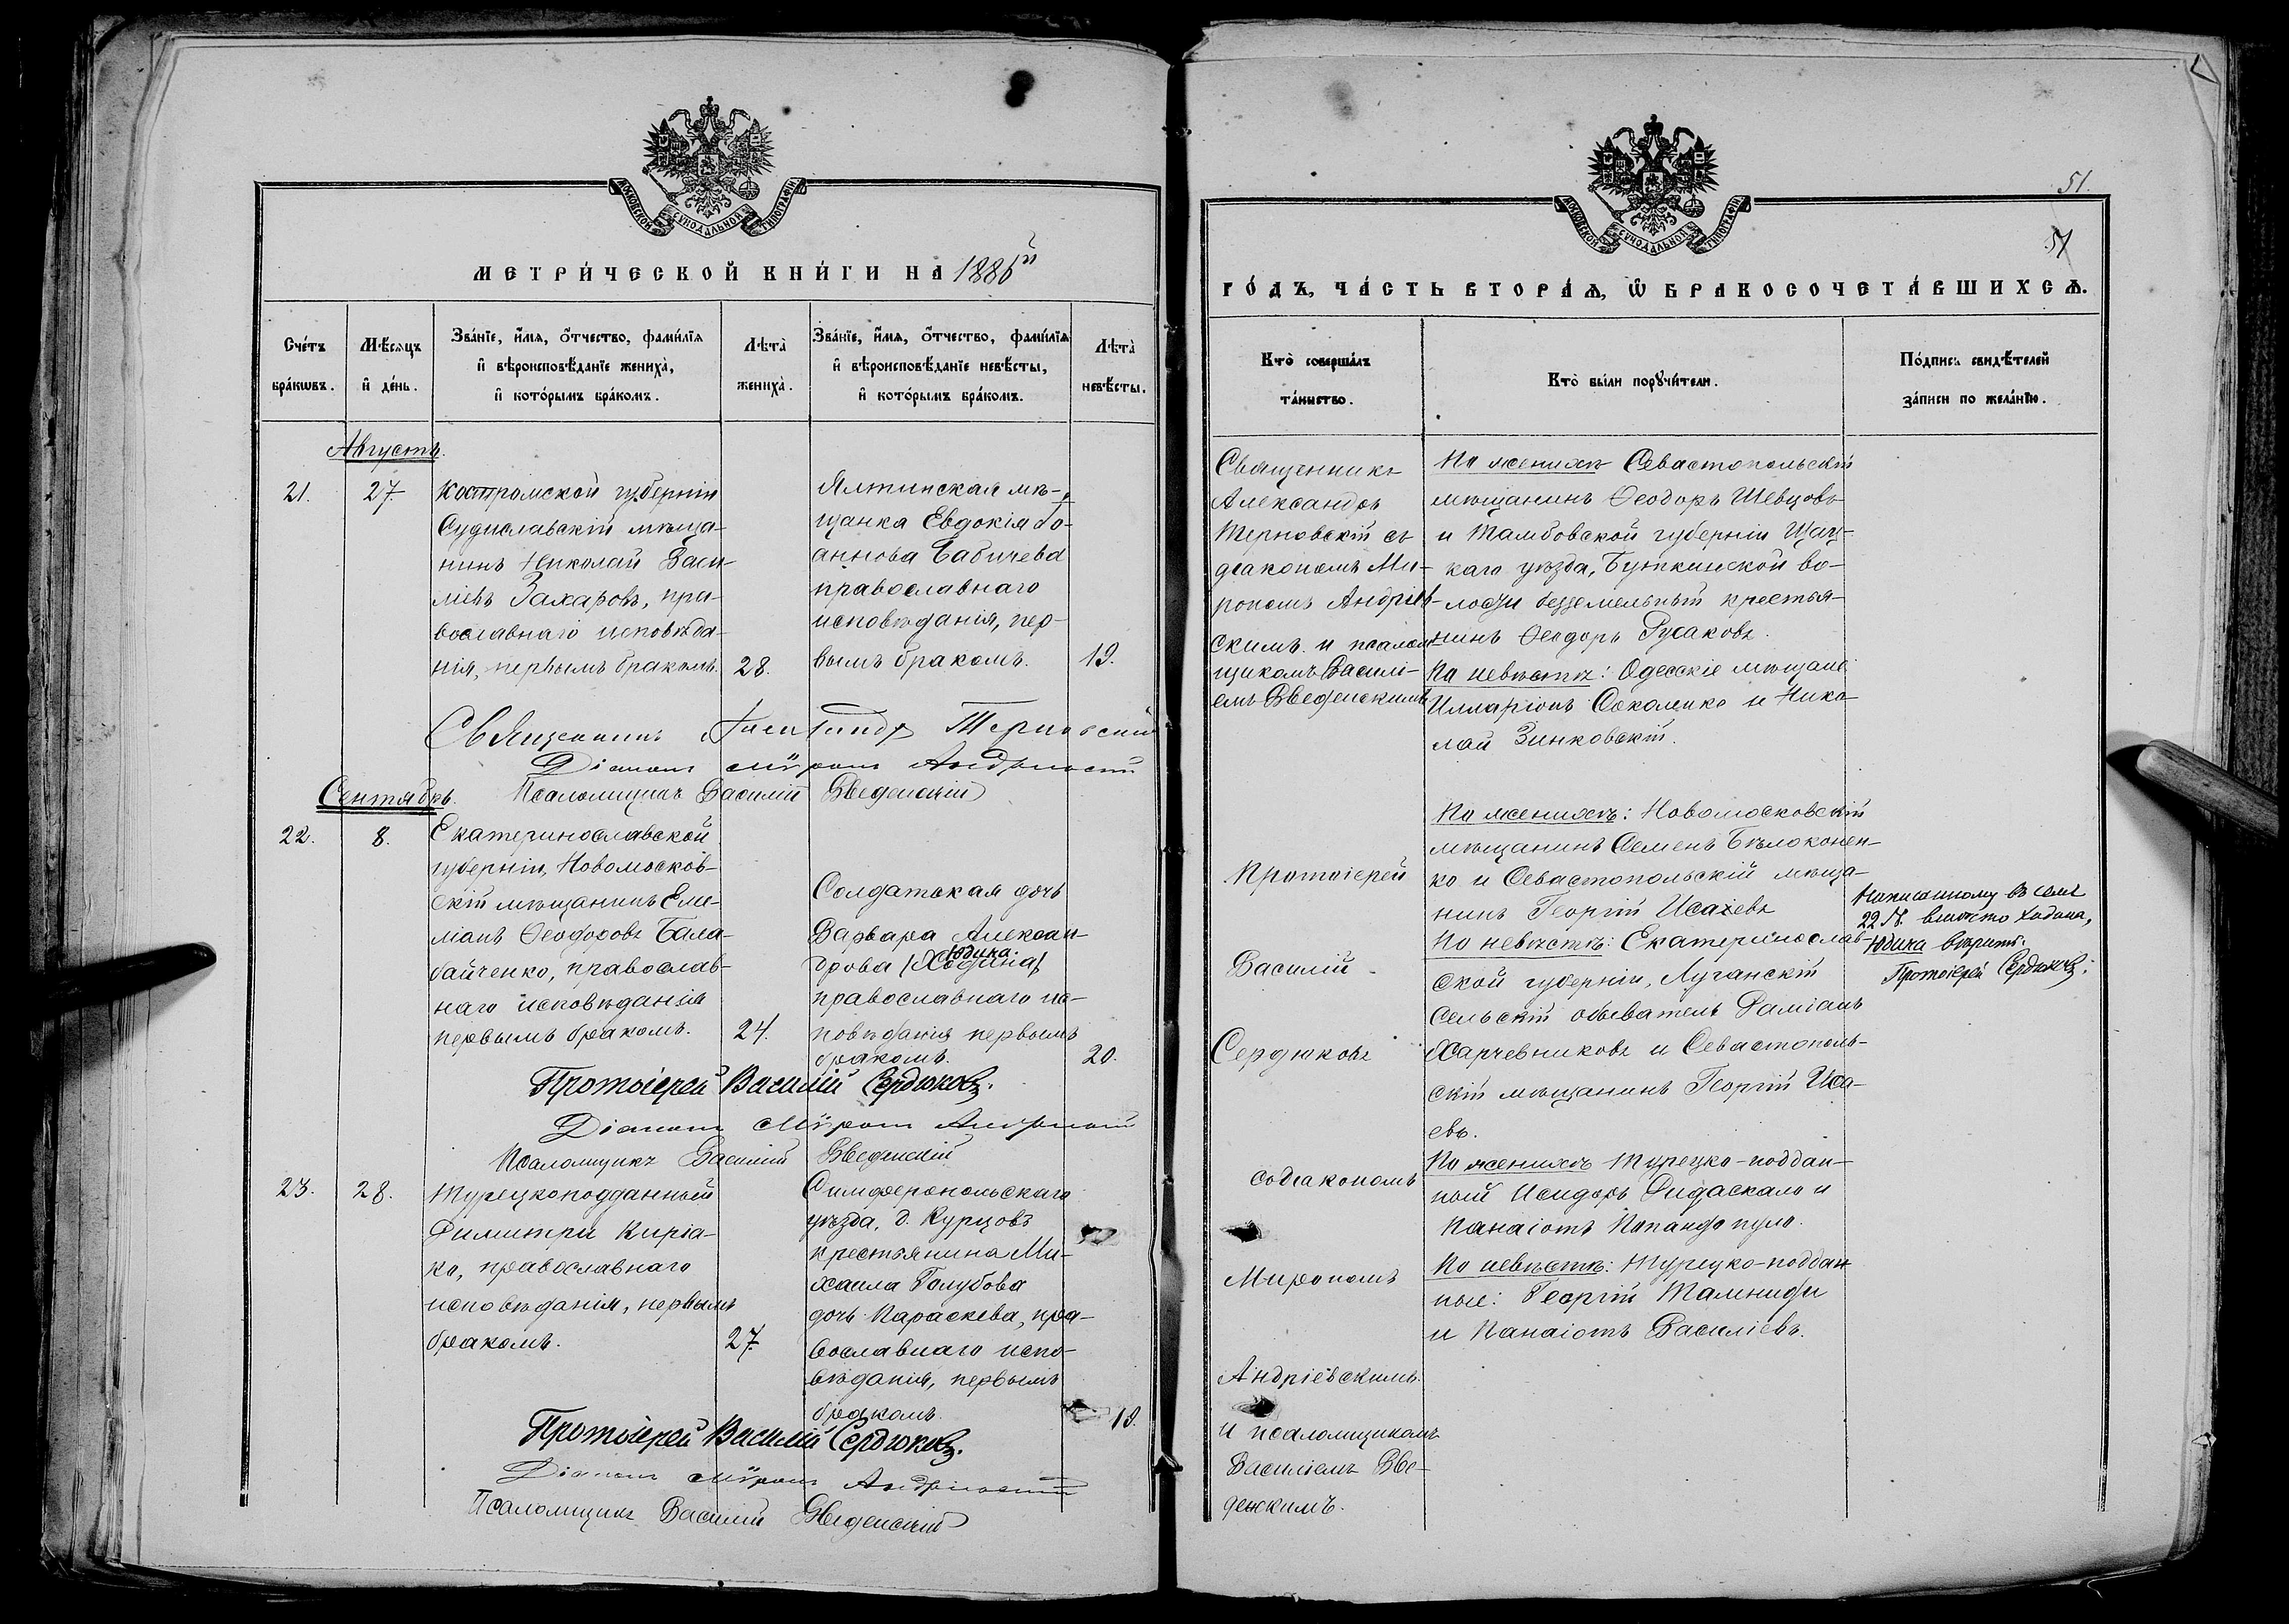 МОСКОВСКОЙ СУНОДАЛЬНОЙ ТИПОГРАФІИ
МЕТРИ́ЧЕСКОЙ КНИ́ГИ НА 1886й
Сче́тъ бра́кωвъ.
Мѣ́сѧцъ и҆ де́нь.
Зва́нїе, и҆́мѧ, ѻ҆́тчество, фами́лїѧ
и҆ вѣроисповѣ́данїе жениха̀,
и҆ кото́рымъ бра́комъ.
Лѣта̀ жениха̀.
Зва́нїе, и҆́мѧ, ѻ҆́тчество, фами́лїѧ
и҆ вѣроисповѣ́данїе невѣ́сты,
и҆ кото́рымъ бра́комъ.
Лѣта̀ невѣ́сты.
Августъ.
21.
27
Костромской губерніи
Судиславскій мѣща-
нинъ Николай Васи-
ліевъ Захаровъ, пра-
вославнаго исповѣда-
нія, первымъ бракомъ.
28.
Ялтинская мѣ-
щанка Евдокія Іо-
аннова Бабичева
православнаго
исповѣданія, пер-
вымъ бракомъ.
19.
Священникъ Александръ Терновскій
Діаконъ Миронъ Андріевскій
Псаломщикъ Василій Введенскій
Сентябрь.
22.
8.
Екатеринославской
губерніи, Новомосков-
скій мѣщанинъ Еми-
ліанъ Ѳеодоровъ Бала-
байченко, православ-
наго исповѣданія
первымъ бракомъ.
24.
Солдатская дочь
Варвара Алексан-
Юдина
дрова /Ходина/
православнаго ис-
повѣданія первымъ
бракомъ.
20.
Протоіерей Василій Сердюковъ.
Діаконъ Миронъ Андріевскій
Псаломщикъ Василій Введенскій
23.
28.
Турецкоподданный
Димитри Киріа-
ко, православнаго
исповѣданія, первымъ
бракомъ.
27
Симферопольскаго
уѣзда, д. Курцовъ
крестьянина Ми-
хаила Голубова
дочь Параскева, пра-
вославнаго испо-
вѣданія, первымъ
бракомъ.
19.
Протоіерей Василій Сердюковъ.
Діаконъ Миронъ Андріевскій
Псаломщикъ Василій Введенскій
51.
51
МОСКОВСКОЙ СУНОДАЛЬНОЙ ТИПОГРАФІИ
ГО́ДЪ, ЧА́СТЬ ВТОРА́Ѧ, Ѡ҆ БРАКОСОЧЕТА́ВШИХСѦ.
Кто̀ соверша́лъ
та́инство.
Кто̀ бы́ли порꙋчи́тели.
По́дпись свидѣ́телей
за́писи по жела́нїю.
Священникъ
Александръ
Терновскій съ
діакономъ Ми-
рономъ Андріев-
скимъ и псалом-
щикомъ Василі-
емъ Введенскимъ
По женихѣ Севастопольскій
мѣщанинъ Ѳеодоръ Шевцовъ
и Тамбовской губерніи Шац-
каго уѣзда, Буткинской во-
лости безземельный крестья-
нинъ Ѳеодоръ Русаковъ.
По невѣстѣ: Одесскіе мѣщане
Илларіонъ Соколенко и Нико-
лай Зинковскій.
Протоіерей
Василій
Сердюковъ
съ діакономъ
Мирономъ
Андріевскимъ
и псаломщикомъ
Василіемъ Вве-
денскимъ.
По женихѣ: Новомосковскій
мѣщанинъ Семенъ Бѣлоконен-
ко и Севастопольскій мѣща-
нинъ Георгій Исаевъ
По невѣстѣ: Екатеринослав-
ской губерніи, Луганскій
сельскій обыватель Даміанъ
Харчевниковъ и Севастополь-
скій мѣщанинъ Георгій Иса-
евъ.
Написанному въ семъ
22 №. вмѣсто Ходина,
Юдина вѣрить.
Протоіерей Сердюковъ.
По женихѣ Турецко-поддан-
ный Исидоръ Дидаскало и
Панаіотъ Попандопуло.
По невѣстѣ: Турецко-поддан
ные: Георгій
и Панаіотъ Василіевъ.